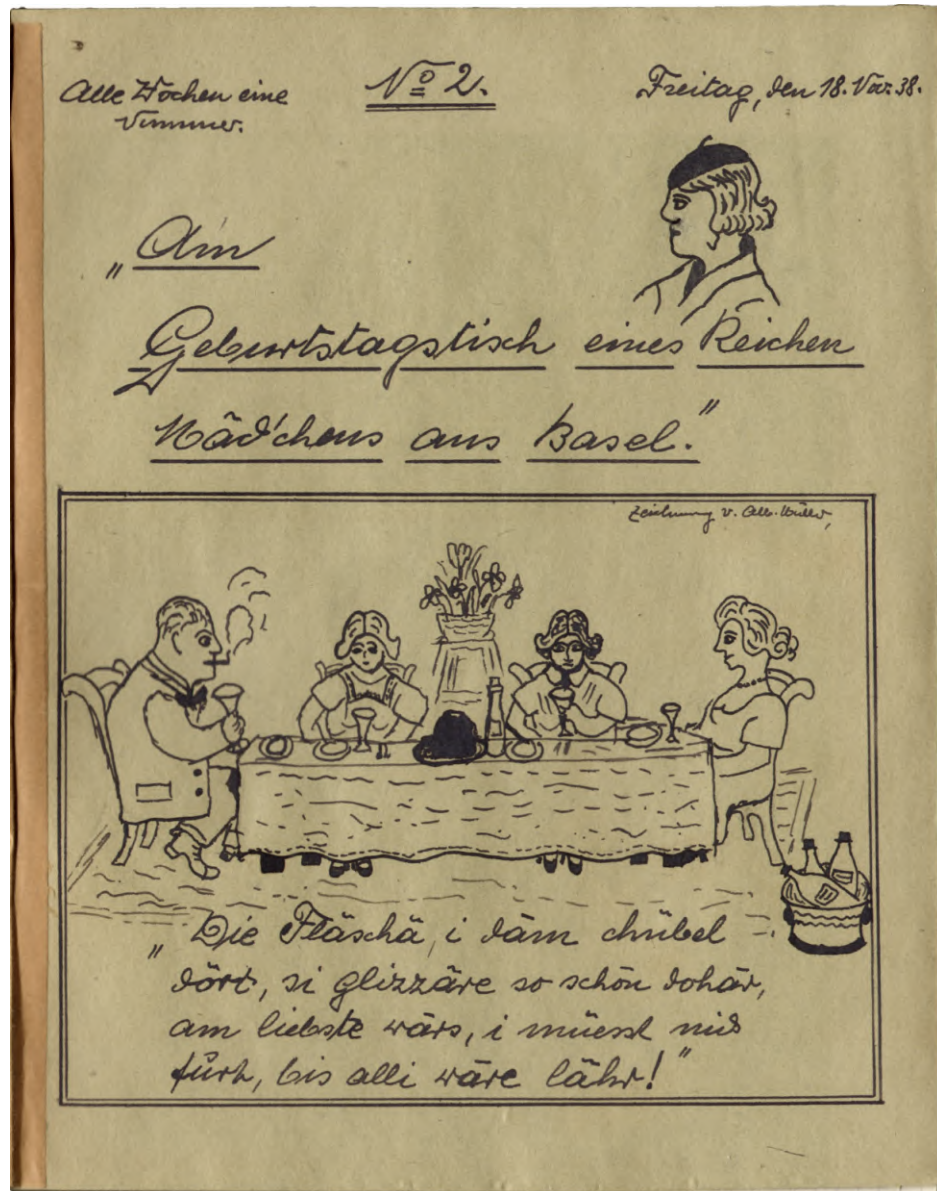 Alle Wochen eine
Nummer.
No 2.
Freitag, den 18. Nov. 38.
„Am
Geburtstagstisch eines Reichen
Mädchens aus Basel."
Zeichnung v. Alb. Müller,
„Die Fläschä, i däm chübel
dört, si glizzäre so schön dohär,
am liebste wärs, i müesst nid
fürt, bis alli wäre lähr!"